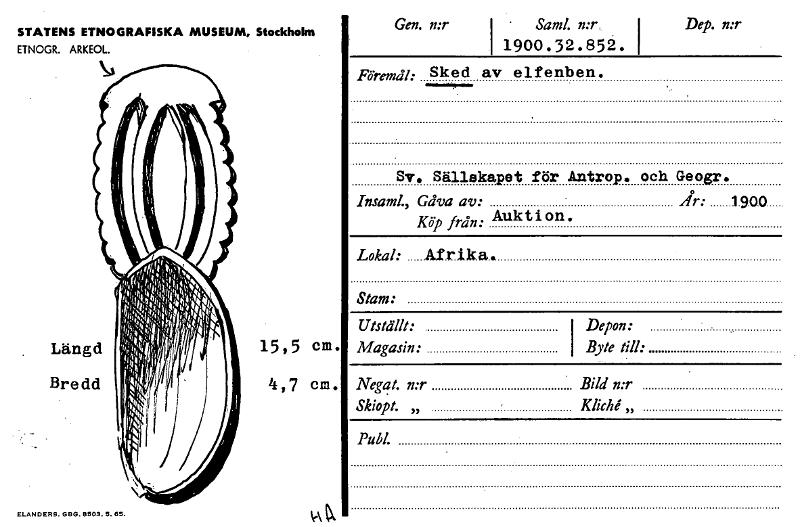 STATENS ETNOGRAFISKA MUSEUM, Stockholm
ETNOGR. ARKEOL.
Längd 15,5 cm.
Bredd 4,7 cm.
ELANDERS, GBG. 8503. 5. 65.
HA
Gen. n:r Saml. n:r Dep. n:r
1900.32.852.
Föremål: Sked av elfenben.
Sv. Sällskapet för Antrop. och Geogr.
Insaml., Gåva av: År: 1900
Köp från: Auktion.
Lokal: Afrika.
Stam:
Utställt: Depon:
Magasin: Byte till:
Negat. n:r Bild n:r
Skiopt. „ Kliché „
Publ.